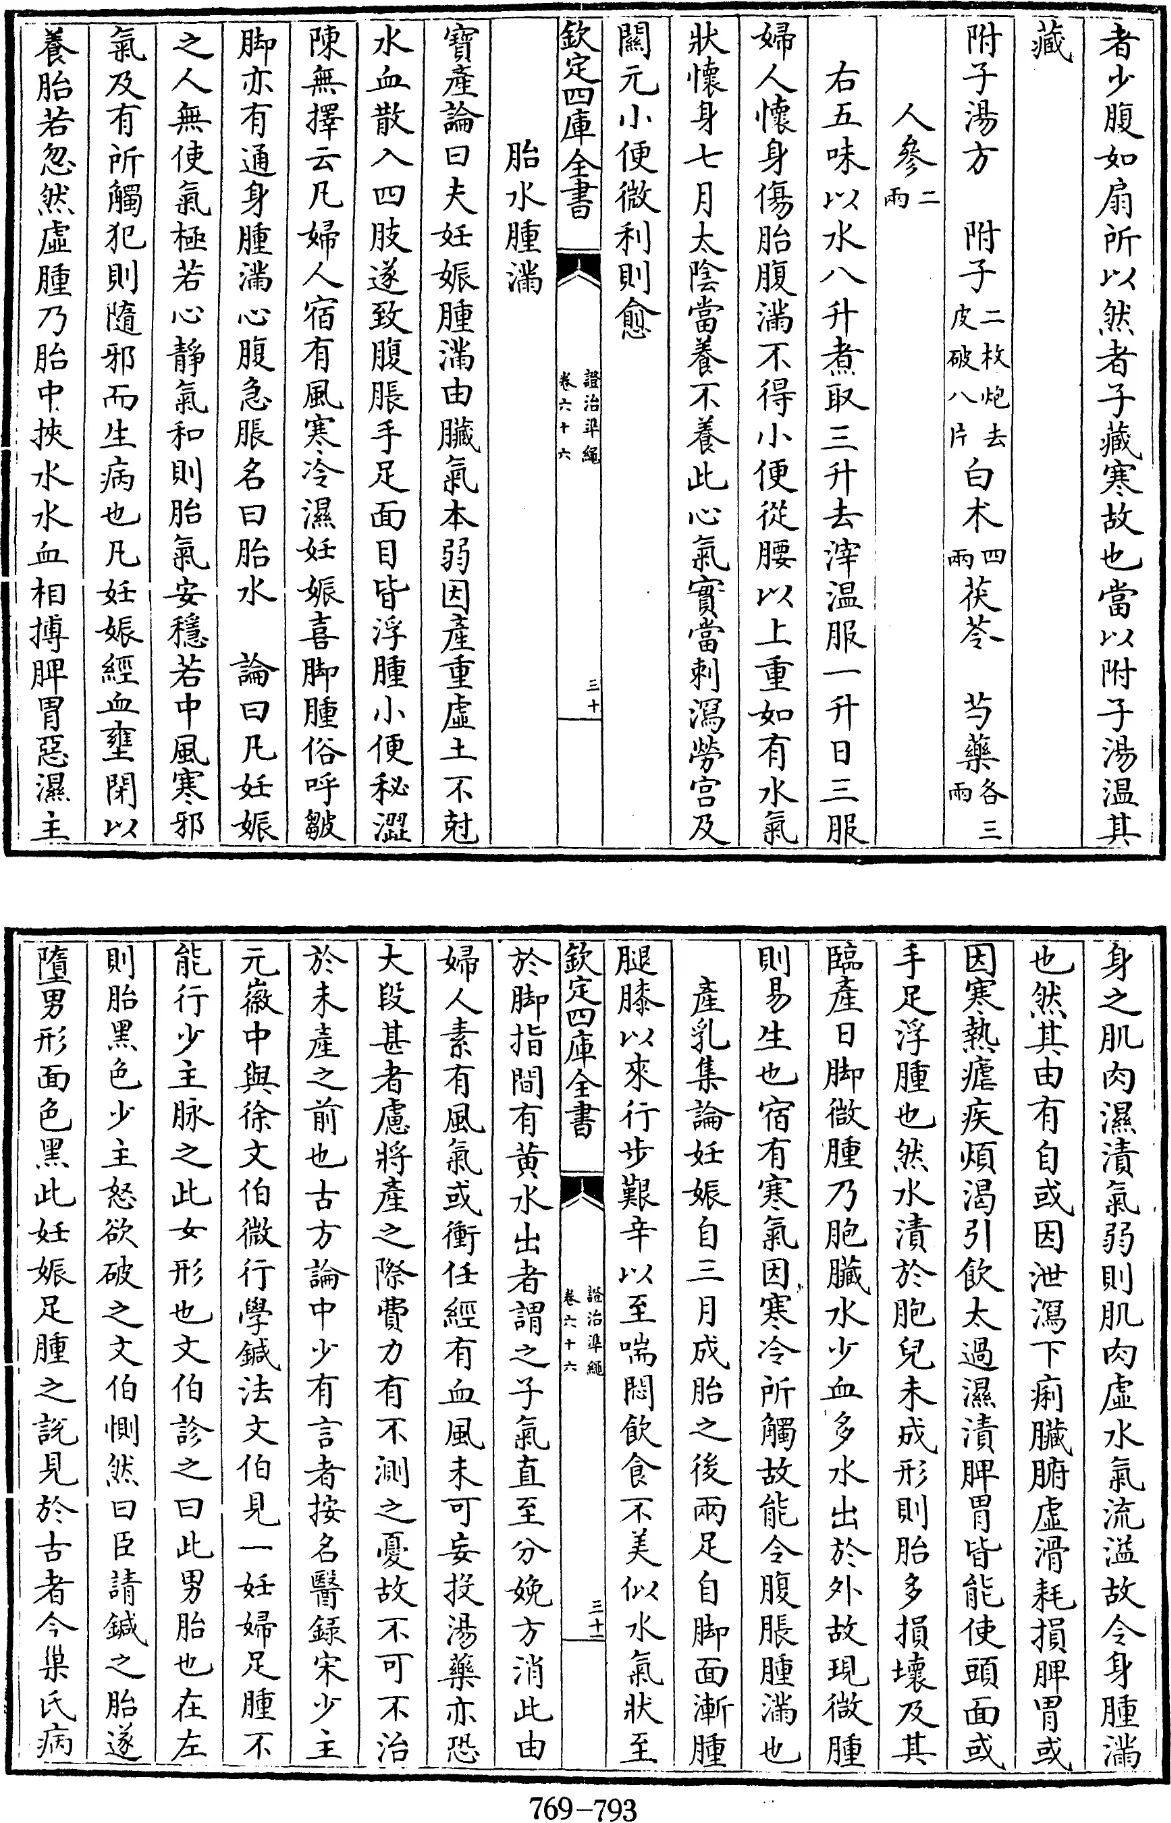 者少腹如扇所以然者子藏寒故也當以附子湯温其
藏
附子湯方　附子二枚炮去皮破八片白术四兩茯苓　芍藥各三兩
人參二兩
右五味以水八升煮取三升去滓温服一升日三服
婦人懷身傷胎腹滿不得小便從腰以上重如有水氣
狀懷身七月太陰當養不養此心氣實當刺瀉勞宫及
關元小便微利則愈
欽定四庫全書
證治準繩
卷六十六
三十
胎水腫滿
寶產論曰夫妊娠腫滿由臟氣本弱因產重虛土不尅
水血散入四肢遂致腹脹手足面目皆浮腫小便秘澀
陳無擇云凡婦人宿有風寒冷濕妊娠喜脚腫俗呼皺
脚亦有通身腫滿心腹急脹名曰胎水　論曰凡妊娠
之人無使氣極若心靜氣和則胎氣安穩若中風寒邪
氣及有所觸犯則隨邪而生病也凡妊娠經血壅閉以
養胎若忽然虛腫乃胎中挾水水血相搏脾胃惡濕主
身之肌肉濕漬氣弱則肌肉虛水氣流溢故令身腫滿
也然其由有自或因泄瀉下痢臟腑虛滑耗損脾胃或
因寒熱瘧疾煩渴引飲太過濕漬脾胃皆能使頭面或
手足浮腫也然水漬於胞兒未成形則胎多損壞及其
臨產日脚微腫乃胞臟水少血多水出於外故現微腫
則易生也宿有寒氣因寒冷所觸故能令腹脹腫滿也
產乳集論妊娠自三月成胎之後兩足自脚面漸腫
腿膝以來行步艱辛以至喘悶飲食不美似水氣狀至
欽定四庫全書
證治準繩
卷六十六
三十一
於脚指間有黄水出者謂之子氣直至分娩方消此由
婦人素有風氣或衝任經有血風未可妄投湯藥亦恐
大段甚者慮將產之際費力有不測之憂故不可不治
於未產之前也古方論中少有言者按名醫録宋少主
元徽中與徐文伯微行學鍼法文伯見一妊婦足腫不
能行少主脉之此女形也文伯診之曰此男胎也在左
則胎黑色少主怒欲破之文伯惻然曰臣請鍼之胎遂
墮男形面色黑此妊娠足腫之説見於古者今巢氏病
769-793